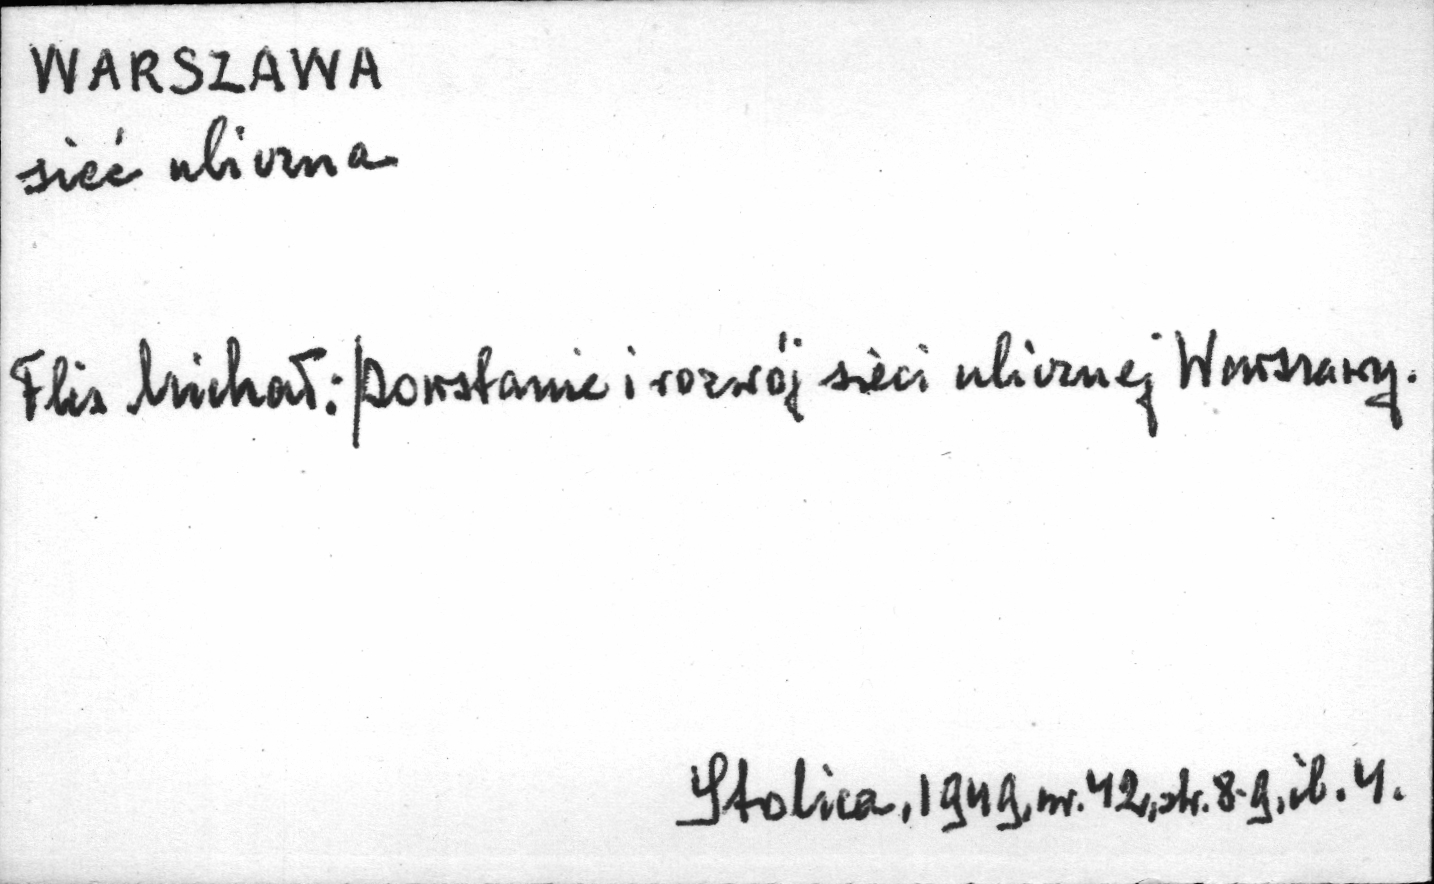 WARSZAWA
sieć uliczna
Flis Michał: Powstanie i rozwój sieci ulicznej Warszawy.
Stolica, 1949, nr. 42, str. 8-9, il. 4.